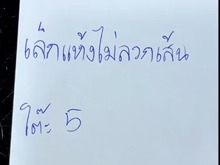 เล็กแห้งไม่ลวกเส้น
โต๊ะ 5